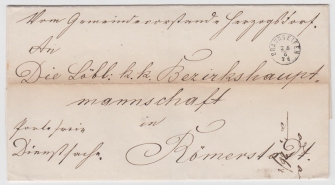 Vom Gemeindevorstande Herzogsdorf.
An
Die Löbl: k. k. Bezirkshaupt-
mannschaft
in
Portofreie
Dienstsache.
Römerstadt.